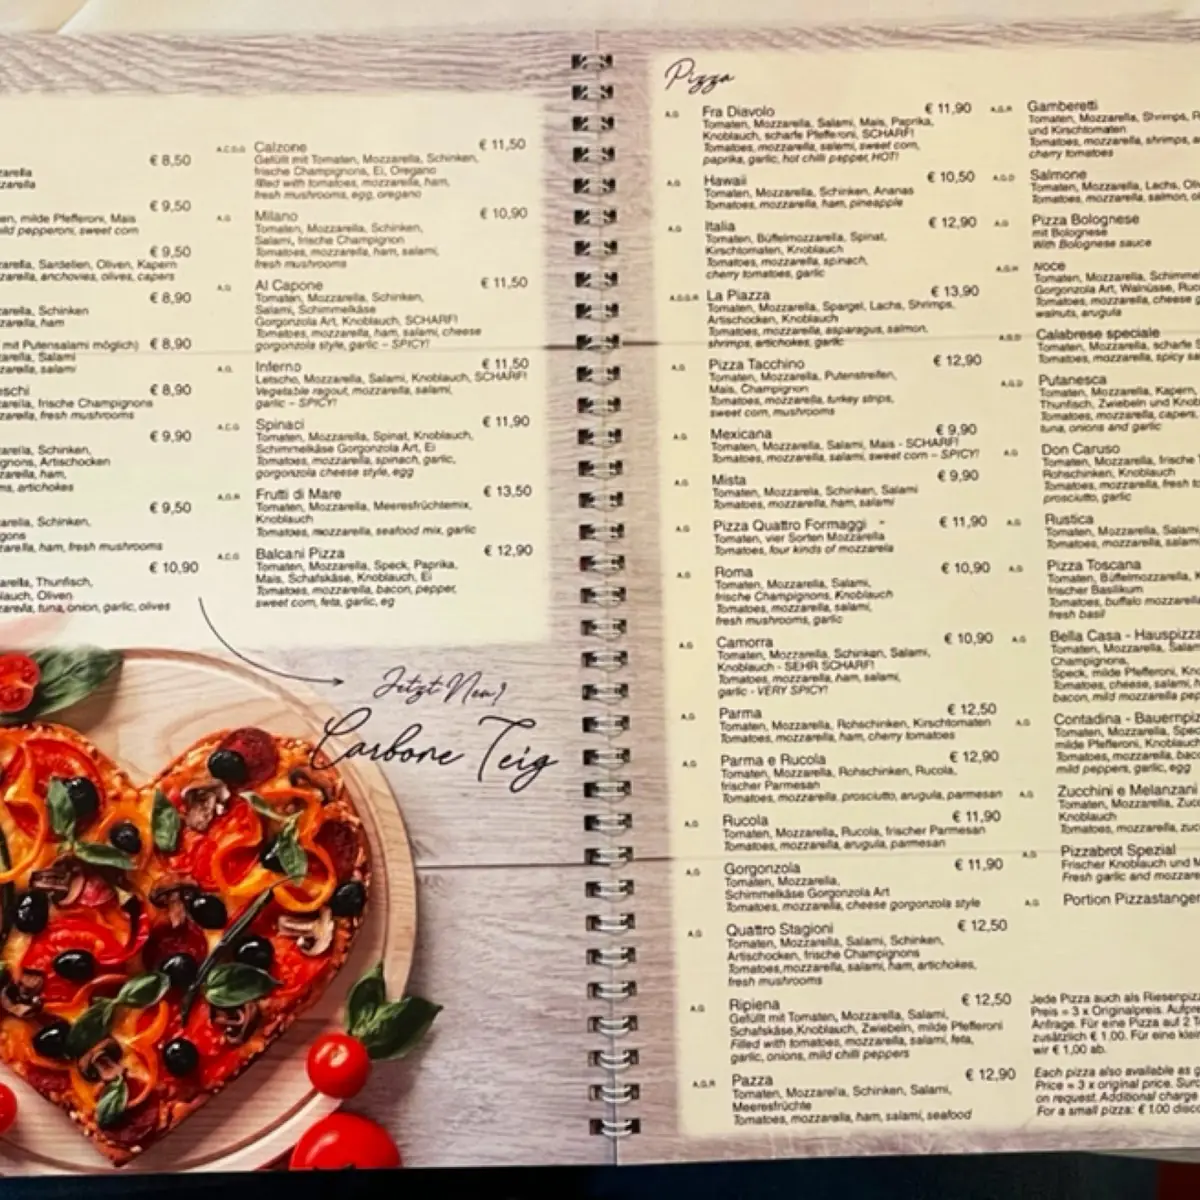 € 8,50
zarella
zarella
€ 9,50
en, milde Pfefferoni, Mais
ild pepperoni, sweet corn
€ 9,50
zarella, Sardellen, Oliven, Kapern
zarella, anchovies, olives, capers
€ 8,90
zarella, Schinken
zarella, ham
mit Putensalami möglich) € 8,90
zarella, Salami
zarella, salami
eschi € 8,90
zarella, frische Champignons
zarella, fresh mushrooms
€ 9,90
zarella, Schinken,
gnons, Artischocken
zarella, ham,
ms, artichokes
€ 9,50
zarella, Schinken,
gons
zarella, ham, fresh mushrooms
€ 10,90
zarella, Thunfisch,
uch, Oliven
zarella, tuna, onion, garlic, olives
A,C,D,G Calzone € 11,50
Gefüllt mit Tomaten, Mozzarella, Schinken,
frische Champignons, Ei, Oregano
filled with tomatoes, mozzarella, ham,
fresh mushrooms, egg, oregano
A,G Milano € 10,90
Tomaten, Mozzarella, Schinken,
Salami, frische Champignon
Tomatoes, mozzarella, ham, salami,
fresh mushrooms
A,G Al Capone € 11,50
Tomaten, Mozzarella, Schinken,
Salami, Schimmelkäse
Gorgonzola Art, Knoblauch, SCHARF!
Tomatoes, mozzarella, ham, salami, cheese
gorgonzola style, garlic – SPICY!
A,G, Inferno € 11,50
Letscho, Mozzarella, Salami, Knoblauch, SCHARF!
Vegetable ragout, mozzarella, salami,
garlic – SPICY!
A,C,G Spinaci € 11,90
Tomaten, Mozzarella, Spinat, Knoblauch,
Schimmelkäse Gorgonzola Art, Ei
Tomatoes, mozzarella, spinach, garlic,
gorgonzola cheese style, egg
A,G,R Frutti di Mare € 13,50
Tomaten, Mozzarella, Meeresfrüchtemix,
Knoblauch
Tomatoes, mozzarella, seafood mix, garlic
A,C,G Balcani Pizza € 12,90
Tomaten, Mozzarella, Speck, Paprika,
Mais, Schafskäse, Knoblauch, Ei
Tomatoes, mozzarella, bacon, pepper,
sweet corn, feta, garlic, eg
Jetzt Neu!
Carbone Teig
Pizza
A,G Fra Diavolo € 11,90
Tomaten, Mozzarella, Salami, Mais, Paprika,
Knoblauch, scharfe Pfefferoni, SCHARF!
Tomatoes, mozzarella, salemi, sweet corn,
paprika, garlic, hot chilli pepper, HOT!
A,G Hawaii € 10,50
Tomaten, Mozzarella, Schinken, Ananas
Tomatoes, mozzarella, ham, pineapple
A,G Italia € 12,90
Tomaten, Büffelmozzarella, Spinat,
Kirschtomaten, Knoblauch
Tomatoes, mozzarella, spinach,
cherry tomatoes, garlic
La Piazza € 13,90
Tomaten, Mozzarella, Spargel, Lachs, Shrimps,
Artischocken, Knoblauch
Tomatoes, mozzarella, asparagus, salmon,
shrimps, artichokes, garlic
A,G Pizza Tacchino € 12,90
Tomaten, Mozzarella, Putenstreifen,
Mais, Champignon
Tomatoes, mozzarella, turkey strips,
sweet corn, mushrooms
A,G Mexicana € 9,90
Tomaten, Mozzarella, Salami, Mais - SCHARF!
Tomatoes, mozzarella, salami, sweet corn – SPICY!
A,G Mista € 9,90
Tomaten, Mozzarela, Schinken, Salami
Tomatoes, mozzarella, ham, salami
A,G Pizza Quattro Formaggi - € 11,90
Tomaten, vier Sorten Mozzarella
Tomatoes, four kinds of mozzarela
A,G Roma € 10,90
Tomaten, Mozzarella, Salami,
frische Champignons, Knoblauch
Tomatoes, mozzarella, salami,
fresh mushrooms, garlic
A,G Camorra € 10,90
Tomaten, Mozzarella, Schinken, Salami,
Knoblauch - SEHR SCHARF!
Tomatoes, mozzarella, ham, salami,
garlic - VERY SPICY!
A,G Parma € 12,50
Tomaten, Mozzarella, Rohschinken, Kirschtomaten
Tomatoes, mozzarella, ham, cherry tomatoes
A,G Parma e Rucola € 12,90
Tomaten, Mozzarella, Rohschinken, Rucola,
frischer Parmesan
Tomatoes, mozzarella, prosciutto, arugula, parmesan
A,G Rucola € 11,90
Tomaten, Mozzarella, Rucola, frischer Parmesan
Tomaten, mozzarella, arugula, parmesan
A,G Gorgonzola € 11,90
Tomaten, Mozzarella,
Schimmelkäse Gorgonzola Art
Tomatoes, mozzarella, cheese gorgonzola style
A,G Quattro Stagioni € 12,50
Tomaten, Mozzarella, Salami, Schinken,
Artischocken, frische Champignons
Tomatoes, mozzarella, salami, ham, artichokes,
fresh mushrooms
A,G Ripiena € 12,50
Gefüllt mit Tomaten, Mozzarella, Salami,
Schafskäse,Knoblauch, Zwiebeln, milde Pfefferoni
Filled with tomatoes, mozzarella, salami, feta,
garlic, onions, mild chilli peppers
A,G,R Pazza € 12,90
Tomaten, Mozzarella, Schinken, Salami,
Meeresfrüchte
Tomatoes, mozzarella, ham, salami, seafood
A,G,R Gamberetti
Tomaten, Mozzarella, Shrimps, R
und Kirschtomaten
Tomatoes, mozzarella, shrimps, a
cherry tomatoes
A,G,D Salmone
Tomaten, Mozzarella, Lachs, Oli
Tomatoes, mozzarella, salmon, ol
A,G Pizza Bolognese
mit Bolognese
With Bolognese sauce
A,G,H Noce
Tomaten, Mozzarella, Schimme
Gorgonzola Art, Walnüsse, Ruc
Tomatoes, mozzarella, cheese g
walnuts, arugula
A,G,D Calabrese speciale
Tomaten, Mozzarella, scharfe S
Tomatoes, mozzarella, spicy sa
A,G,D Putanesca
Tomaten, Mozzarella, Kapern,
Thunfisch, Zwiebeln und Knob
Tomatoes, mozzarella, capers
tuna, onions and garlic
A,G Don Caruso
Tomaten, Mozzarella, frische T
Rohschinken, Knoblauch
Tomatoes, mozzarella, fresh to
prosciutto, garlic
A,G Rustica
Tomaten, Mozzarella, Salami
Tomatoes, mozzarella, salami
A,G Pizza Toscana
Tomaten, Büffelmozzarella, K
frischer Basilikum
Tomatoes, buffalo mozzarella
fresh basil
A,G Bella Casa - Hauspizza
Tomaten, Mozzarella, Salam
Champignons,
Speck, milde Pfefferoni, Kno
Tomatoes, cheese, salami, h
bacon, mild mozzarella pe
A,G Contadina - Bauernpiz
Tomaten, Mozzarella, Spec
milde Pfefferoni, Knoblauch
Tomatoes, mozzarella, baco
mild peppers, garlic, egg
A,G Zucchini e Melanzani
Tomaten, Mozzarella, Zuc
Knoblauch
Tomatoes, mozzarella, zuc
A,G Pizzabrot Spezial
Frischer Knoblauch und M
Fresh garlic and mozzare
A,G Portion Pizzastanger
Jede Pizza auch als Riesenpizz
Preis = 3 x Originalpreis. Aufpre
Anfrage. Für eine Pizza auf 2 T
zusätzlich € 1,00. Für eine klein
wir € 1,00 ab.
Each pizza also available as g
Price = 3 x original price. Surc
on request. Additional charge
For a small pizza: € 1.00 disco